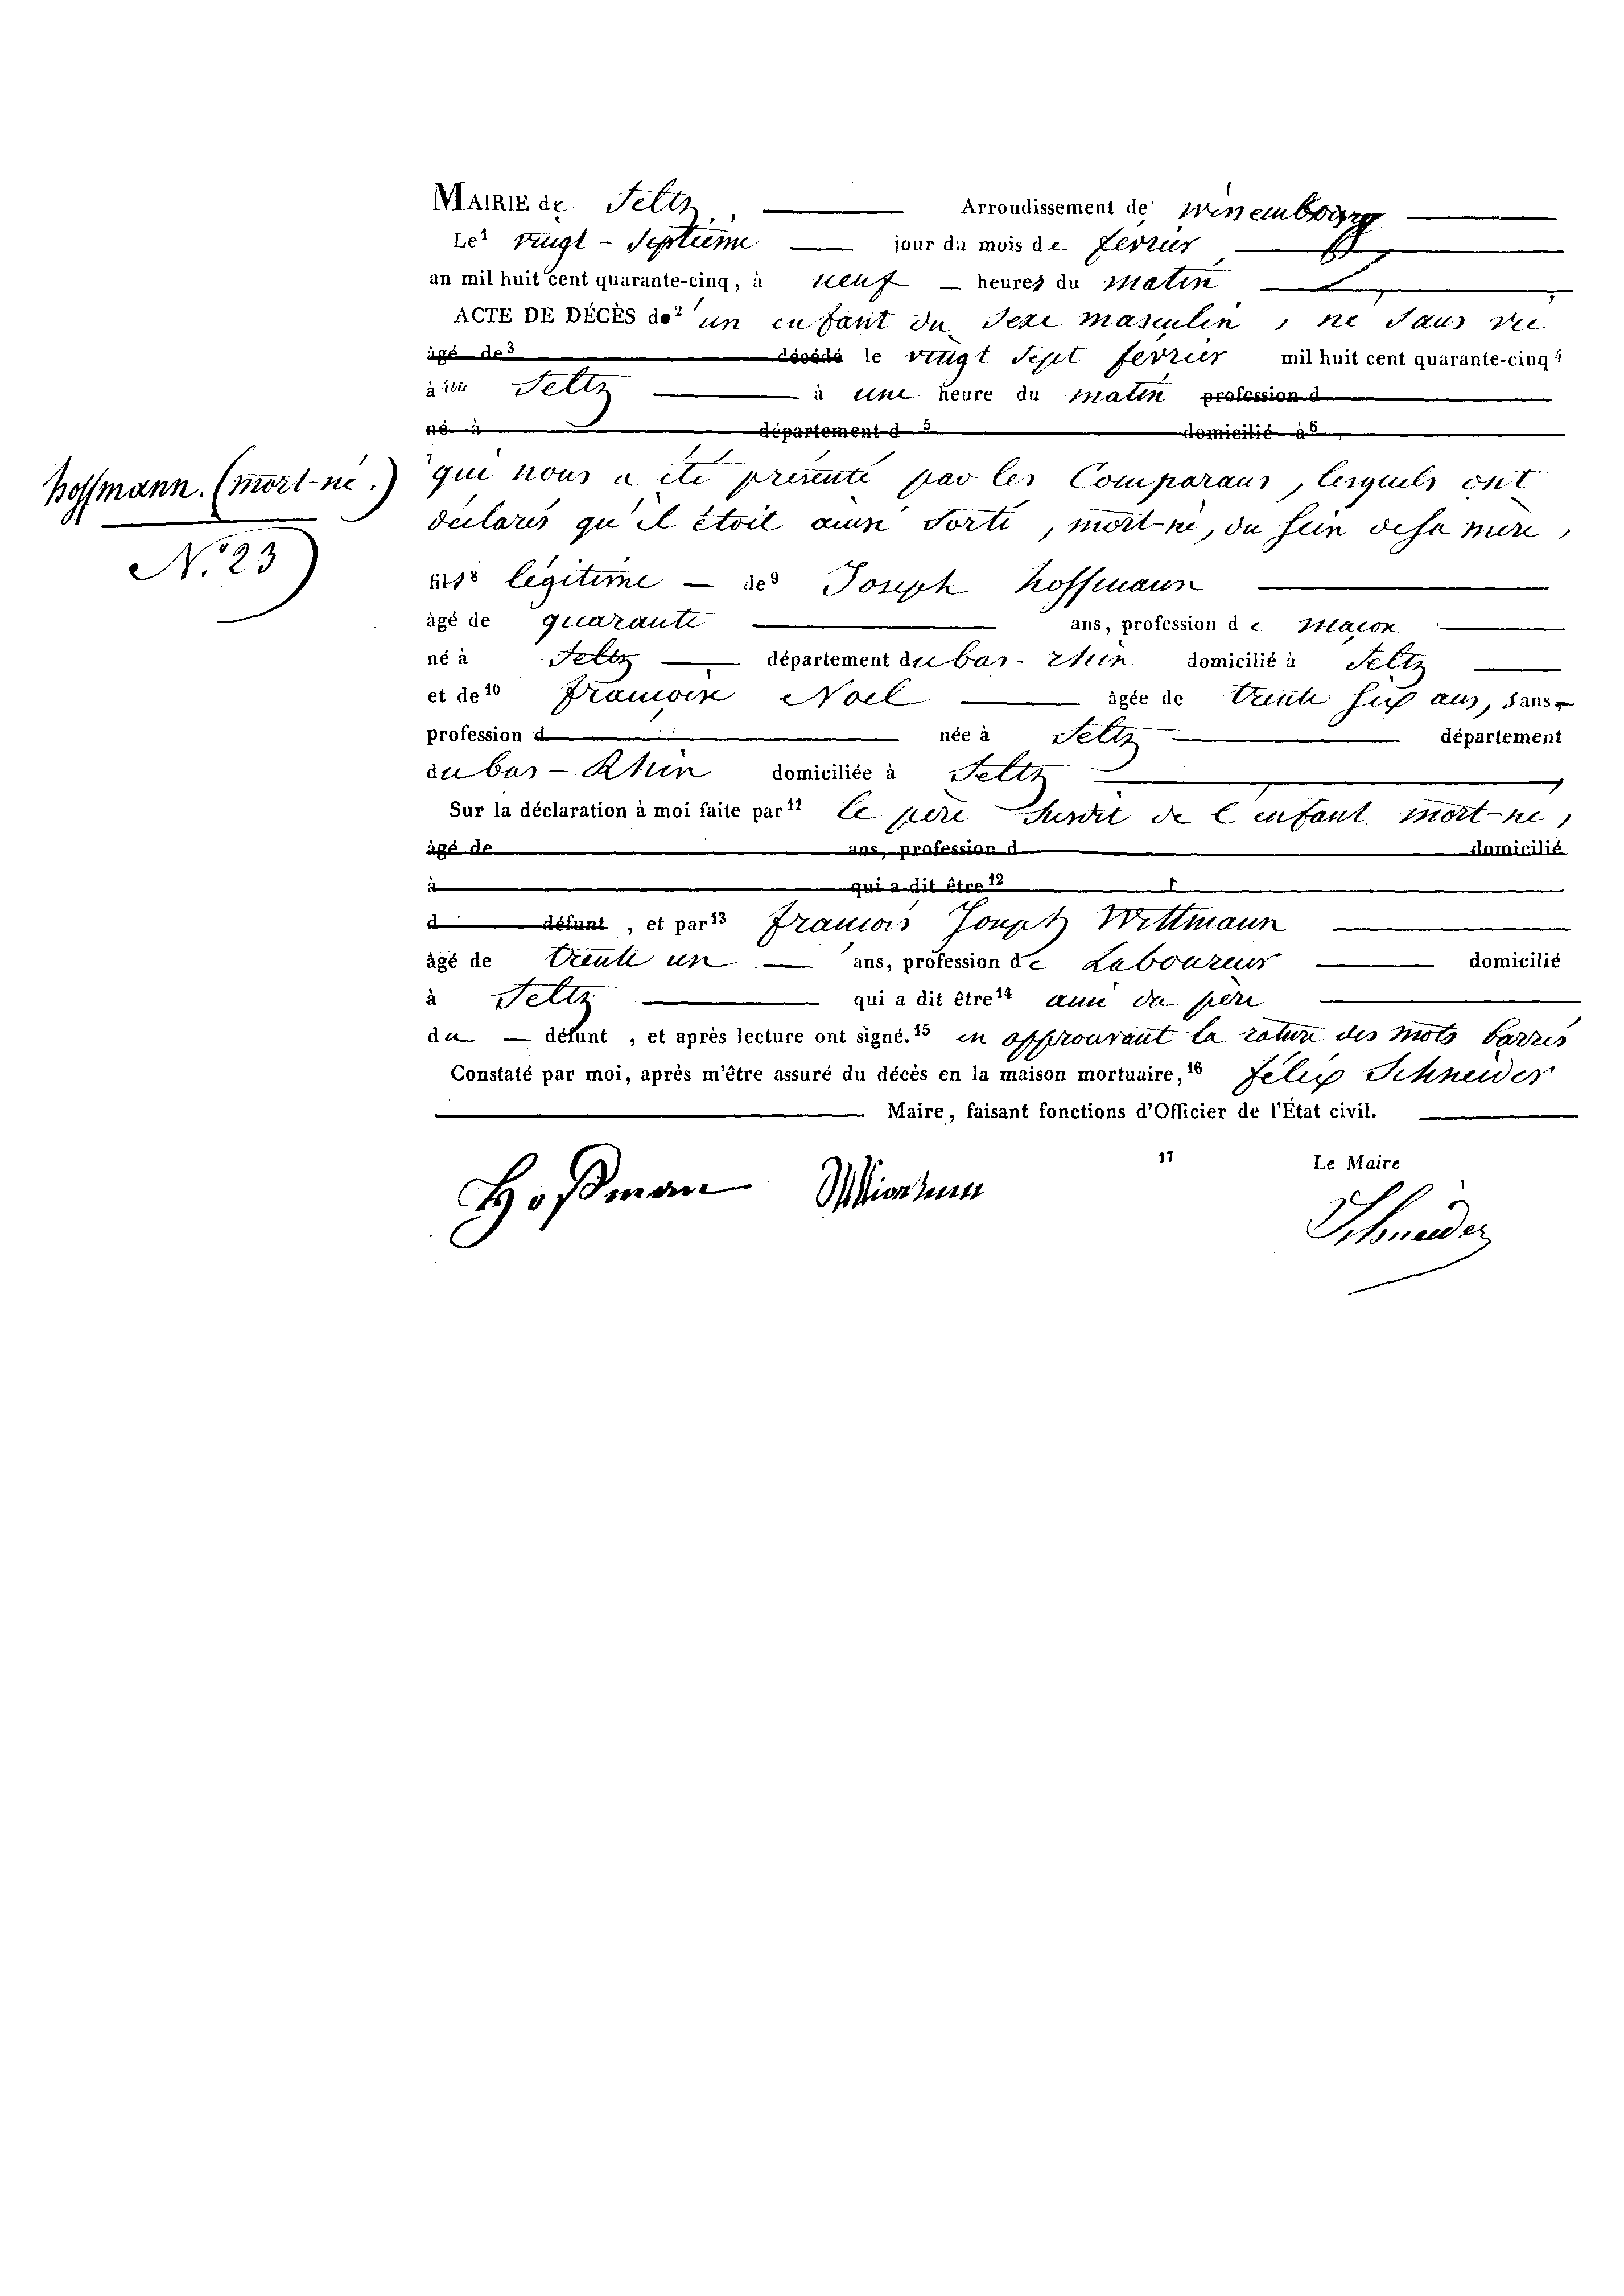 hoffmann. (mort-né.)
N.° 23
MAIRIE de Seltz, Arrondissement de Wissembourg
Le¹ vingt-Septième jour du mois de février
an mil huit cent quarante-cinq, à neuf heures du matin
ACTE DE DÉCÈS de² un enfant du Sexe masculin, né Sans vie
âgé de³ décédé le vingt Sept février mil huit cent quarante-cinq⁴
à ⁴bis Seltz à une heure du matin profession d
né à département d ⁵ domicilié à⁶
⁷ qui nous a été présenté par les Comparans, lesquels ont
déclarés qu'il étoit ainsi Sorti, mort-né, du sein de sa mère,
fils⁸ légitime de⁹ Joseph hoffmann
âgé de quarante ans, profession de Maçon
né à Seltz département du bas-rhin domicilié à Seltz
et de¹⁰ françoise Noel âgée de trente six ans, sans
profession d née à Seltz département
du bas-Rhin domiciliée à Seltz
Sur la déclaration à moi faite par¹¹ le père Susdit de l'enfant mort-né,
âgé de ans, profession d domicilié
à qui a dit être¹²
d défunt, et par¹³ françois Joseph Wittmann
âgé de trente un ans, profession de Laboureur domicilié
à Seltz qui a dit être¹⁴ ami du père
du défunt, et après lecture ont signé.¹⁵ en approuvant la rature des mots barrés
Constaté par moi, après m'être assuré du décès en la maison mortuaire,¹⁶ félix Schneider
Maire, faisant fonctions d'Officier de l'État civil.
17 Le Maire
Hoßman Schneider